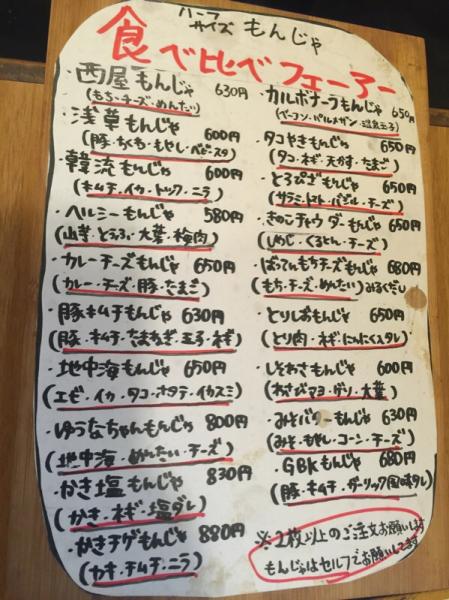 ハーフサイズ もんじゃ
食べ比べフェーアー
・西屋もんじゃ 630円
(もち・チーズ・めんたい)
・浅草もんじゃ 600円
(豚・ちくわ・もやし・ベビースタ)
・韓流もんじゃ 600円
(キムチ・イカ・トック・ニラ)
・ヘルシーもんじゃ 580円
(山芋・とうふ・大葉・検肉)
・カレーチーズもんじゃ 650円
(カレー・チーズ・豚・たまご)
・豚キムチもんじゃ 630円
(豚・キムチ・たまねぎ・玉子・ネギ)
・地中海もんじゃ 650円
(エビ・イカ・タコ・ホタテ・イカスミ)
・ゆうなちゃんもんじゃ 800円
(地中海・めんたい・チーズ)
・かき塩もんじゃ 830円
(かき・ネギ・塩ダレ)
・かきチゲもんじゃ 880円
(カキ・チムチ・ニラ)
・カルボナーラもんじゃ 650円
(ベーコン・パルメザン・温泉玉子)
・タコやきもんじゃ 650円
(タコ・ネギ・天かす・たまご)
・とろぴざもんじゃ 650円
(サラミ・トマト・バジル・チーズ)
・きのこチャウダーもんじゃ 650円
(しめじ・くるとん・チーズ)
・ばってんもちチーズもんじゃ 680円
(もち・チーズ・めんたい)みるくだし
・とりしおもんじゃ 650円
(とり肉・ネギ・にんにく入タレ)
・しそわさもんじゃ 600円
(わさびマヨ・ゲソ・大葉)
・みそバターもんじゃ 630円
(みそ・もやし・コーン・チーズ)
・GBKもんじゃ 680円
(豚・キムチ・ガーリック風味タレ)
※2枚以上のご注文お願いします
もんじゃはセルフでお願いしてます